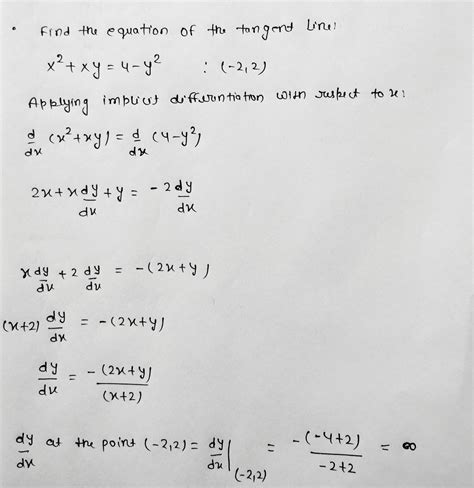 • Find the equation of the tangent line:
x² + xy = 4 - y² : (-2,2)
Applying implicit differentiation with respect to x:
d/dx (x² + xy) = d/dx (4 - y²)
2x + x dy/dx + y = - 2 dy/dx
x dy/dx + 2 dy/dx = - (2x + y)
(x+2) dy/dx = - (2x + y)
dy/dx = - (2x + y) / (x+2)
dy/dx at the point (-2,2) = dy/dx |(-2,2) = -(-4+2) / -2+2 = ∞